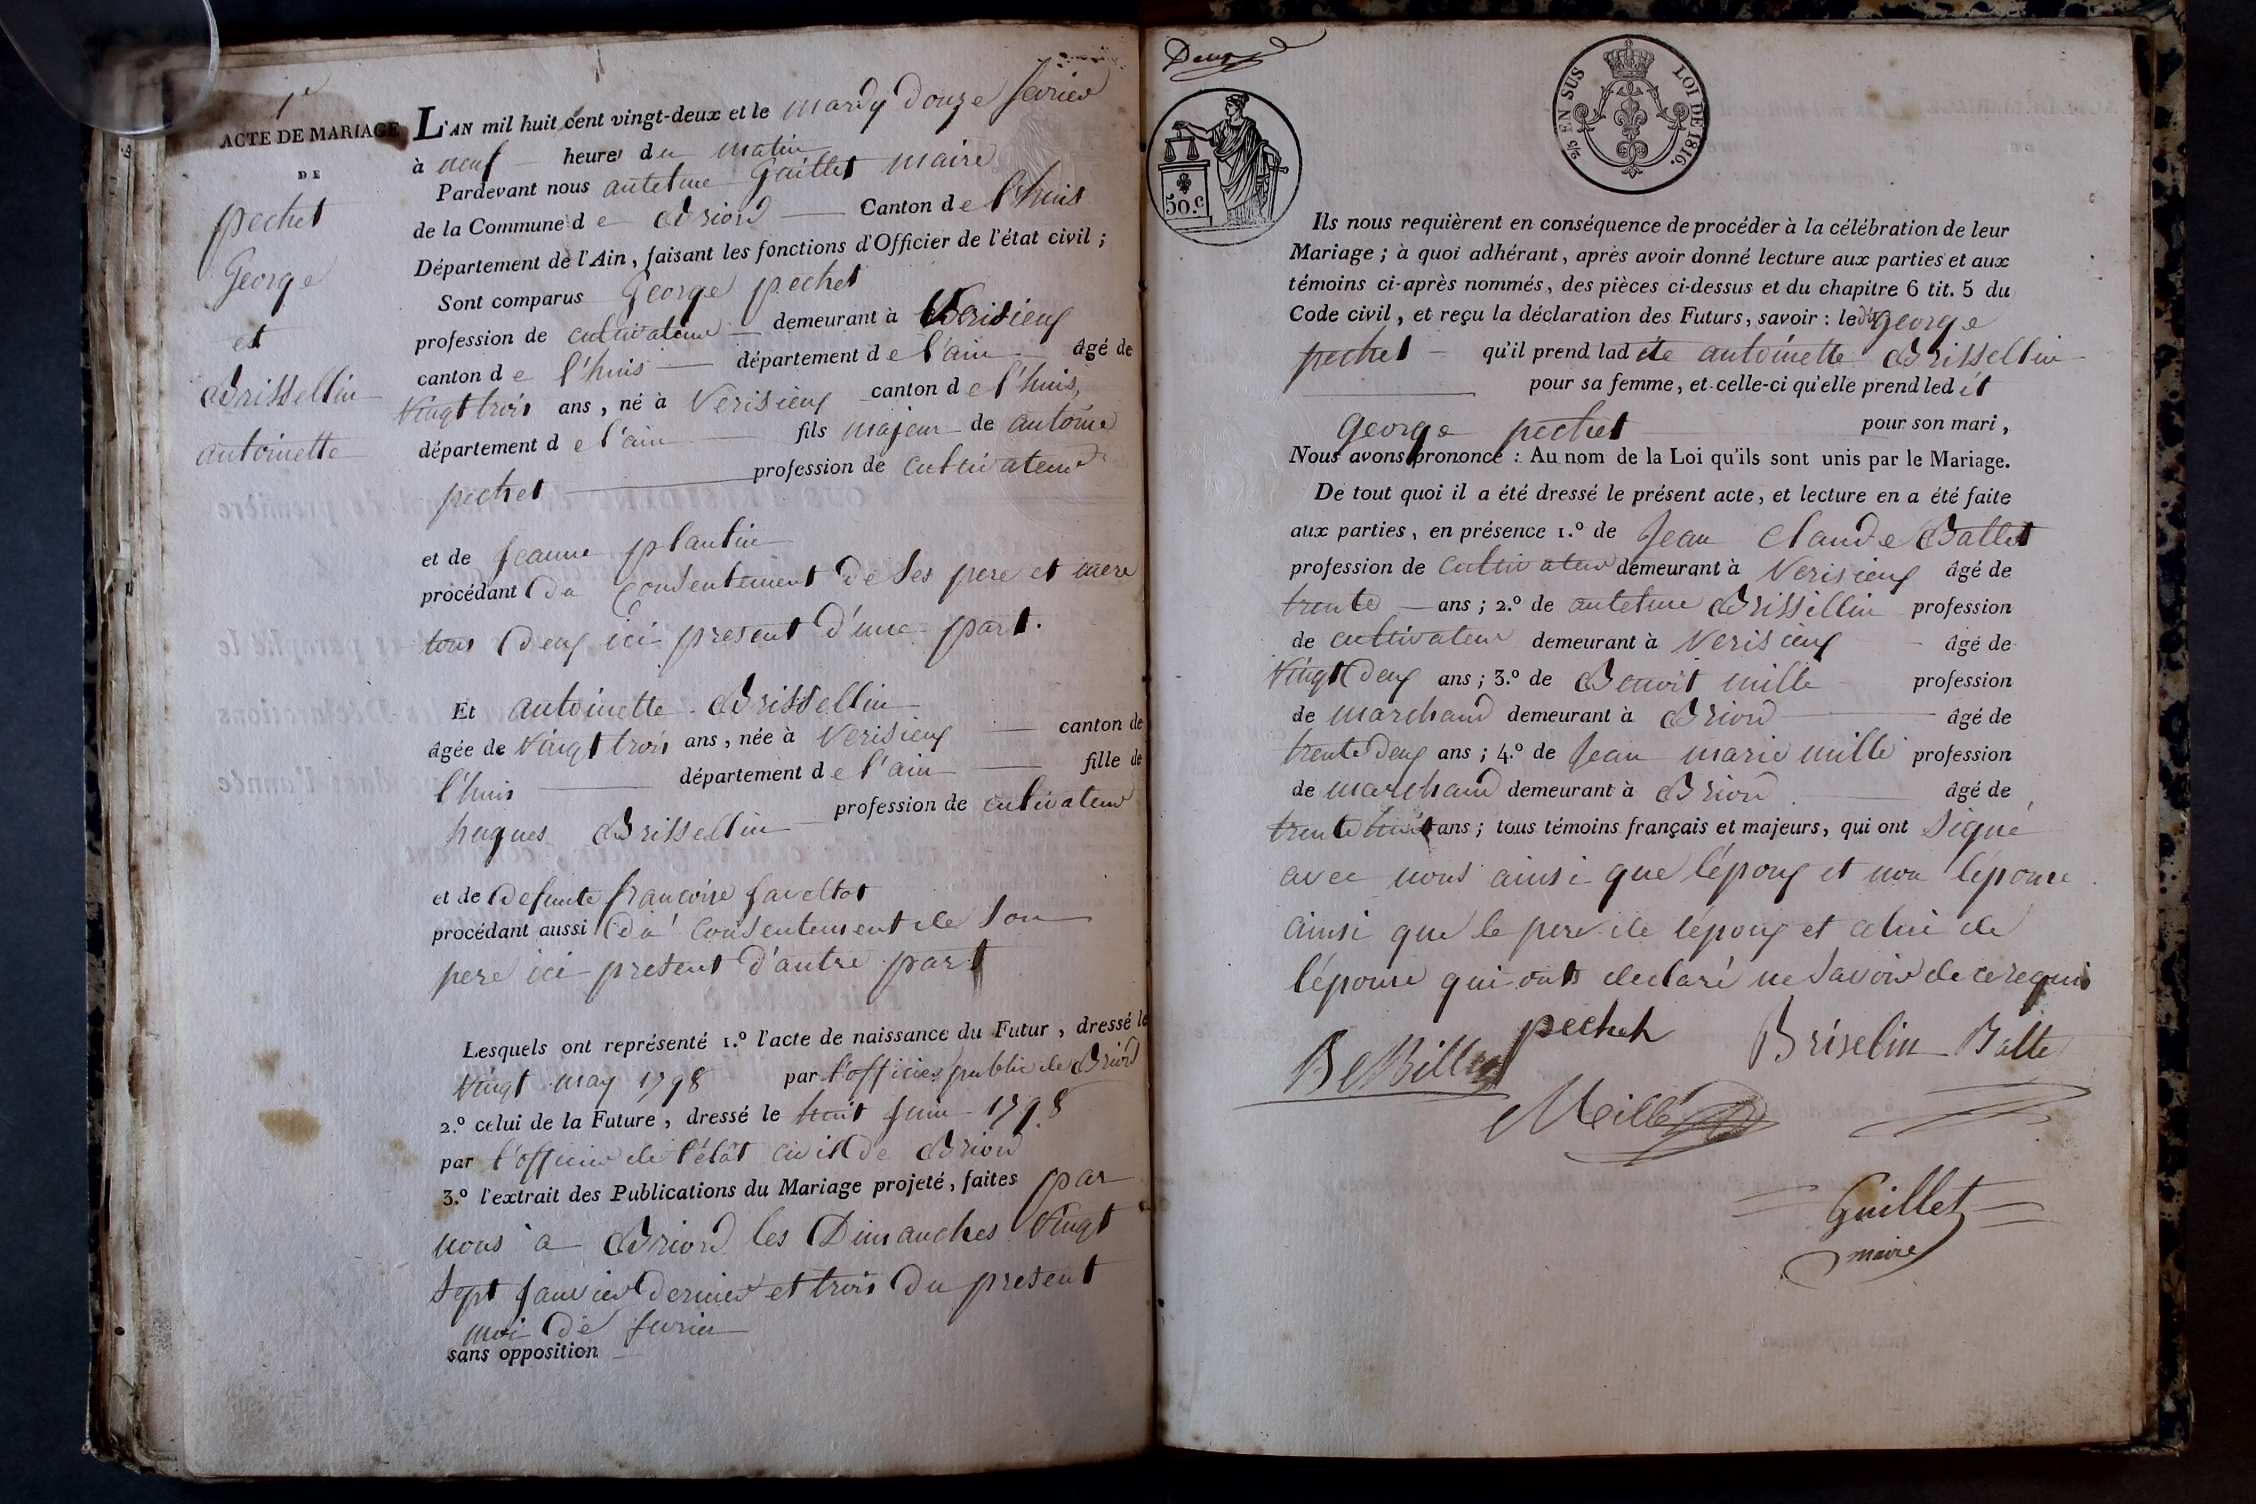 1er
ACTE DE MARIAGE
DE
pechet
George
et
Brissellin
antoinette
L'AN mil huit cent vingt-deux et le mardy douze fevrier
à neuf heure du matin
Pardevant nous antelme Guillet maire
de la Commune de Briord Canton de l'huis
Département de l'Ain, faisant les fonctions d'Officier de l'état civil ;
Sont comparus George pechet
profession de cultivateur demeurant à Verisieux
canton de l'huis département de l'ain âgé de
vingt trois ans, né à Verisieux canton de l'huis,
département de l'ain fils majeur de antoine
pechet profession de cultivateur
et de Jeanne plantin
procédant du consentement de ses pere et mere
tous deux ici present d'une part.
Et antoinette Brissellin
âgée de vingt trois ans, née à Verisieux canton de
l'huis département de l'ain fille de
hugues Brissellin profession de cultivateur
et de defunte francoise favellot
procédant aussi du consentement de son
pere ici present d'autre part
Lesquels ont représenté 1.º l'acte de naissance du Futur, dressé le
vingt may 1798 par l'officier public de Briord
2.º celui de la Future, dressé le huit juin 1798
par l'officier de l'état civil de Briord
3.º l'extrait des Publications du Mariage projeté, faites par
nous à Briord les Dimanches vingt
sept janvier dernier et trois du present
moi de fevrier
sans opposition
Deux
50.c
5/5 EN SUS LOI DE 1816.
Ils nous requièrent en conséquence de procéder à la célébration de leur
Mariage ; à quoi adhérant, après avoir donné lecture aux parties et aux
témoins ci-après nommés, des pièces ci-dessus et du chapitre 6 tit. 5 du
Code civil, et reçu la déclaration des Futurs, savoir : ledit george
pechet qu'il prend ladite antoinette Brissellin
pour sa femme, et celle-ci qu'elle prend ledit
george pechet pour son mari,
Nous avons prononcé : Au nom de la Loi qu'ils sont unis par le Mariage.
De tout quoi il a été dressé le présent acte, et lecture en a été faite
aux parties, en présence 1.º de Jean Claude Ballet
profession de cultivateur demeurant à Verisieux âgé de
trente ans ; 2.º de antelme Brissellin profession
de cultivateur demeurant à Verisieux âgé de
vingt deux ans ; 3.º de Benoit mille profession
de marchand demeurant à Briord âgé de
trente deux ans ; 4.º de Jean marie mille profession
de marchand demeurant à Briord âgé de
trente huit ans ; tous témoins français et majeurs, qui ont signé
avec nous ainsi que l'époux et non l'épouse
ainsi que le pere de l'époux et celui de
l'épouse qui ont declaré ne savoir de ce requis
pechet Briselin Balle
Meille
Guillet
maire